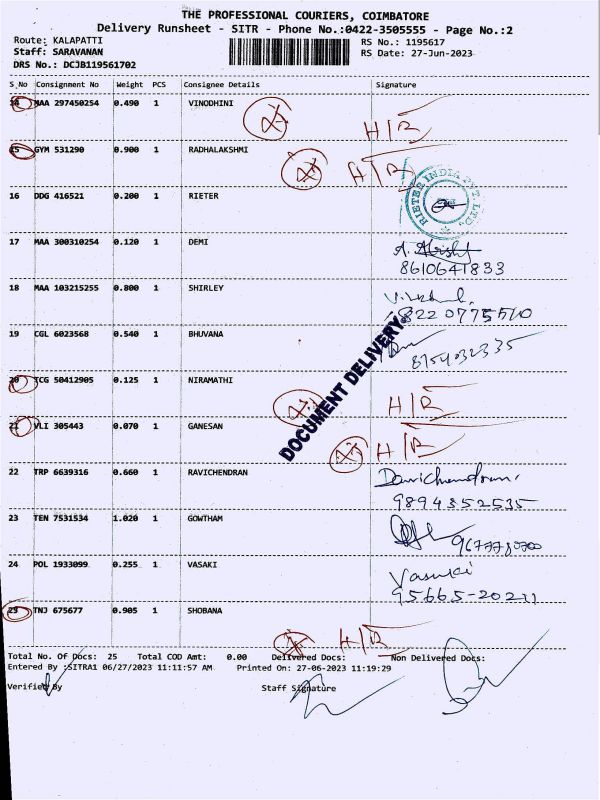 THE PROFESSIONAL COURIERS, COIMBATORE
Delivery Runsheet - SITR - Phone No.:0422-3505555 - Page No.:2
Route: KALAPATTI RS No.: 1195617
Staff: SARAVANAN RS Date: 27-Jun-2023
DRS No.: DCJB119561702
S.No Consignment No Weight PCS Consignee Details Signature
14 MAA 297450254 0.490 1 VINODHINI H/R
15 GYM 531290 0.900 1 RADHALAKSHMI H/R
16 DDG 416521 0.200 1 RIETER RIETER INDIA PVT. LTD.
17 MAA 300310254 0.120 1 DEMI
8610641833
18 MAA 103215255 0.800 1 SHIRLEY
8220775510
19 CGL 6023568 0.540 1 BHUVANA
8754032335
DOCUMENT DELIVERY
20 TCG 50412905 0.125 1 NIRAMATHI H/R
21 VLI 305443 0.070 1 GANESAN H/R
22 TRP 6639316 0.660 1 RAVICHENDRAN
9894352535
23 TEN 7531534 1.020 1 GOWTHAM
24 POL 1933099 0.255 1 VASAKI Vasuki
95665-20211
25 TNJ 675677 0.905 1 SHOBANA H/R
Total No. Of Docs: 25 Total COD Amt: 0.00 Delivered Docs: Non Delivered Docs:
Entered By :SITRA1 06/27/2023 11:11:57 AM Printed On: 27-06-2023 11:19:29
Verified By Staff Signature